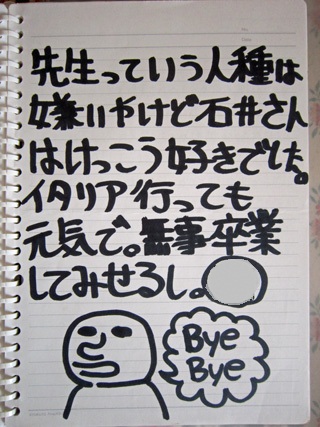 先生っていう人種は
嫌いやけど石井さん
はけっこう好きでした。
イタリア行っても
元気で。無事卒業
してみせるし。
Bye
Bye